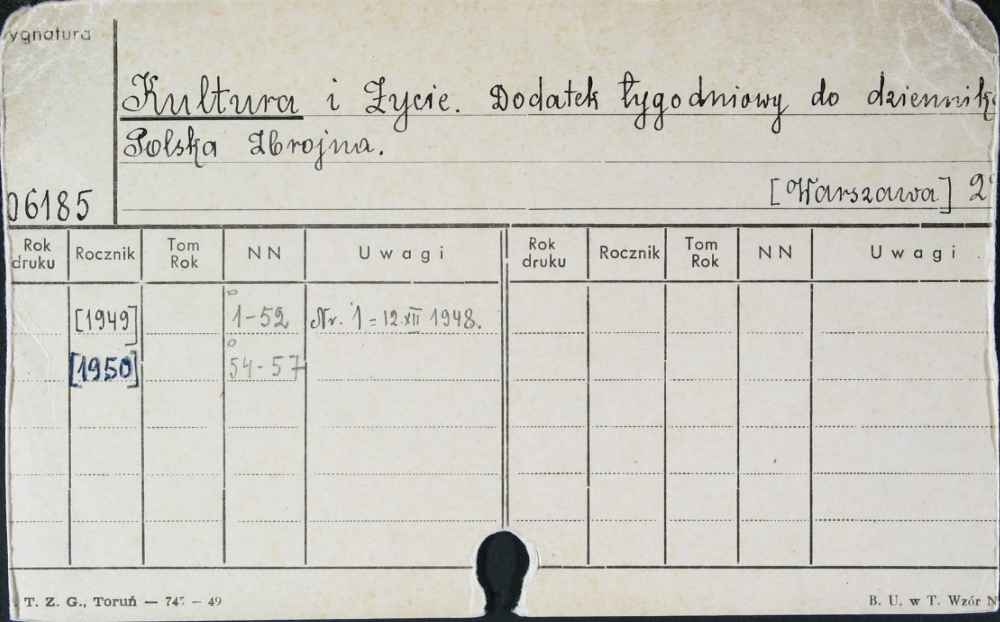 ygnatura
Kultura i Życie. Dodatek tygodniowy do dziennik
Polska Zbrojna.
[Warszawa] 2°
06185
Rok druku Rocznik Tom Rok NN Uwagi Rok druku Rocznik Tom Rok NN Uwagi
[1949] 1-52 Nr. 1 = 12.XII 1948.
[1950] 54-57
T. Z. G., Toruń — 747 — 49 B. U. w T. Wzór N